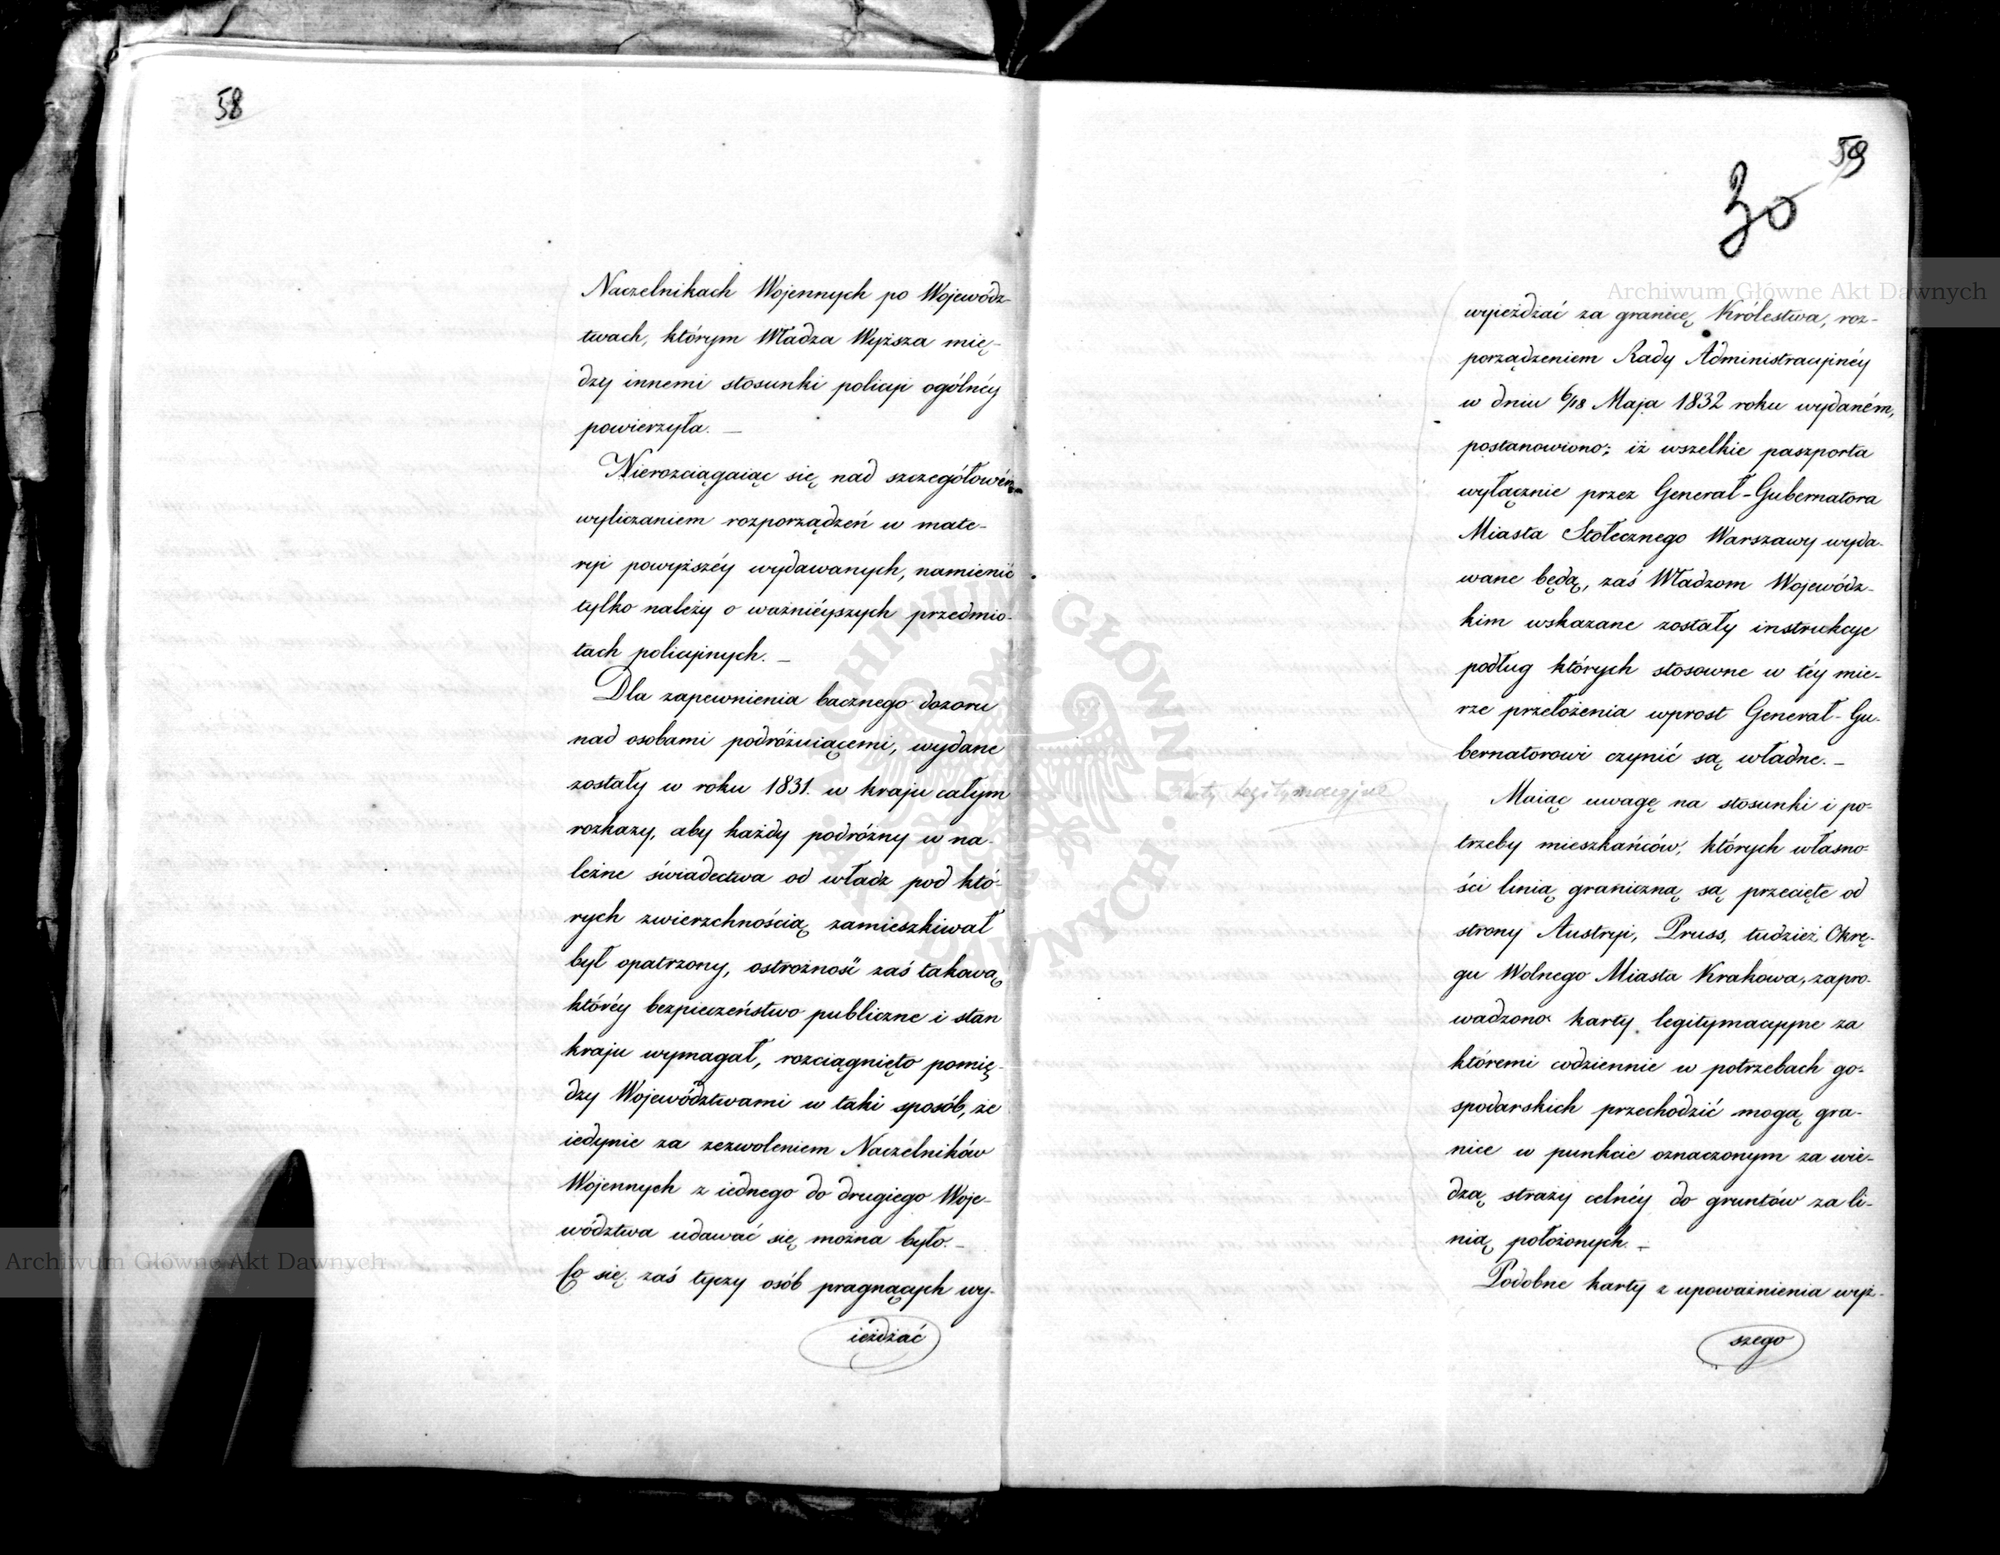 58
Naczelnikach Wojennych po Wojewódz-
twach, którym Władza Wyższa mię-
dzy innemi stosunki policyi ogólnéy
powierzyła. —
Nierozciągaiąc się nad szczegółowém
wyliczaniem rozporządzeń w mate-
ryi powyższéy wydawanych, namienić
tylko należy o ważniéyszych przedmio-
tach policyjnych. —
Dla zapewnienia bacznego dozoru
nad osobami podróżuiącemi, wydane
zostały w roku 1831. w kraju całym
rozkazy, aby każdy podróżny w na-
leżne świadectwa od władz pod któ-
rych zwierzchnością zamieszkiwał
był opatrzony, ostrożność zaś takową
któréy bezpieczeństwo publiczne i stan
kraju wymagał, rozciągnięto pomię-
dzy Województwami w taki sposób, że
iedynie za zezwoleniem Naczelników
Wojennych z iednego do drugiego Woje-
wództwa udawać się można było. —
Co się zaś tyczy osób pragnących wy-
ieżdżać
59
30
wyieżdżać za granicę Królestwa, roz-
porządzeniem Rady Administracyjnéy
w dniu 6/18 Maja 1832 roku wydaném,
postanowiono; iż wszelkie paszporta
wyłącznie przez Generał-Gubernatora
Miasta Stołecznego Warszawy wyda-
wane będą, zaś Władzom Wojewódz-
kim wskazane zostały instrukcye
podług których stosowne w téy mie-
rze przełożenia wprost Generał-Gu-
bernatorowi czynić są władne. —
Karty legitymacyjne
Maiąc uwagę na stosunki i po-
trzeby mieszkańców, których własno-
ści linią graniczną są przecięte od
strony Austryi, Pruss, tudzież Okrę-
gu Wolnego Miasta Krakowa, zapro-
wadzono karty legitymacyjne za
któremi codziennie w potrzebach go-
spodarskich przechodzić mogą gra-
nice w punkcie oznaczonym za wie-
dzą straży celnéy do gruntów za li-
nią położonych. —
Podobne karty z upoważnienia wyż-
szego
Archiwum Główne Akt Dawnych
Archiwum Główne Akt Dawnych
ARCHIWUM GŁÓWNE AKT DAWNYCH